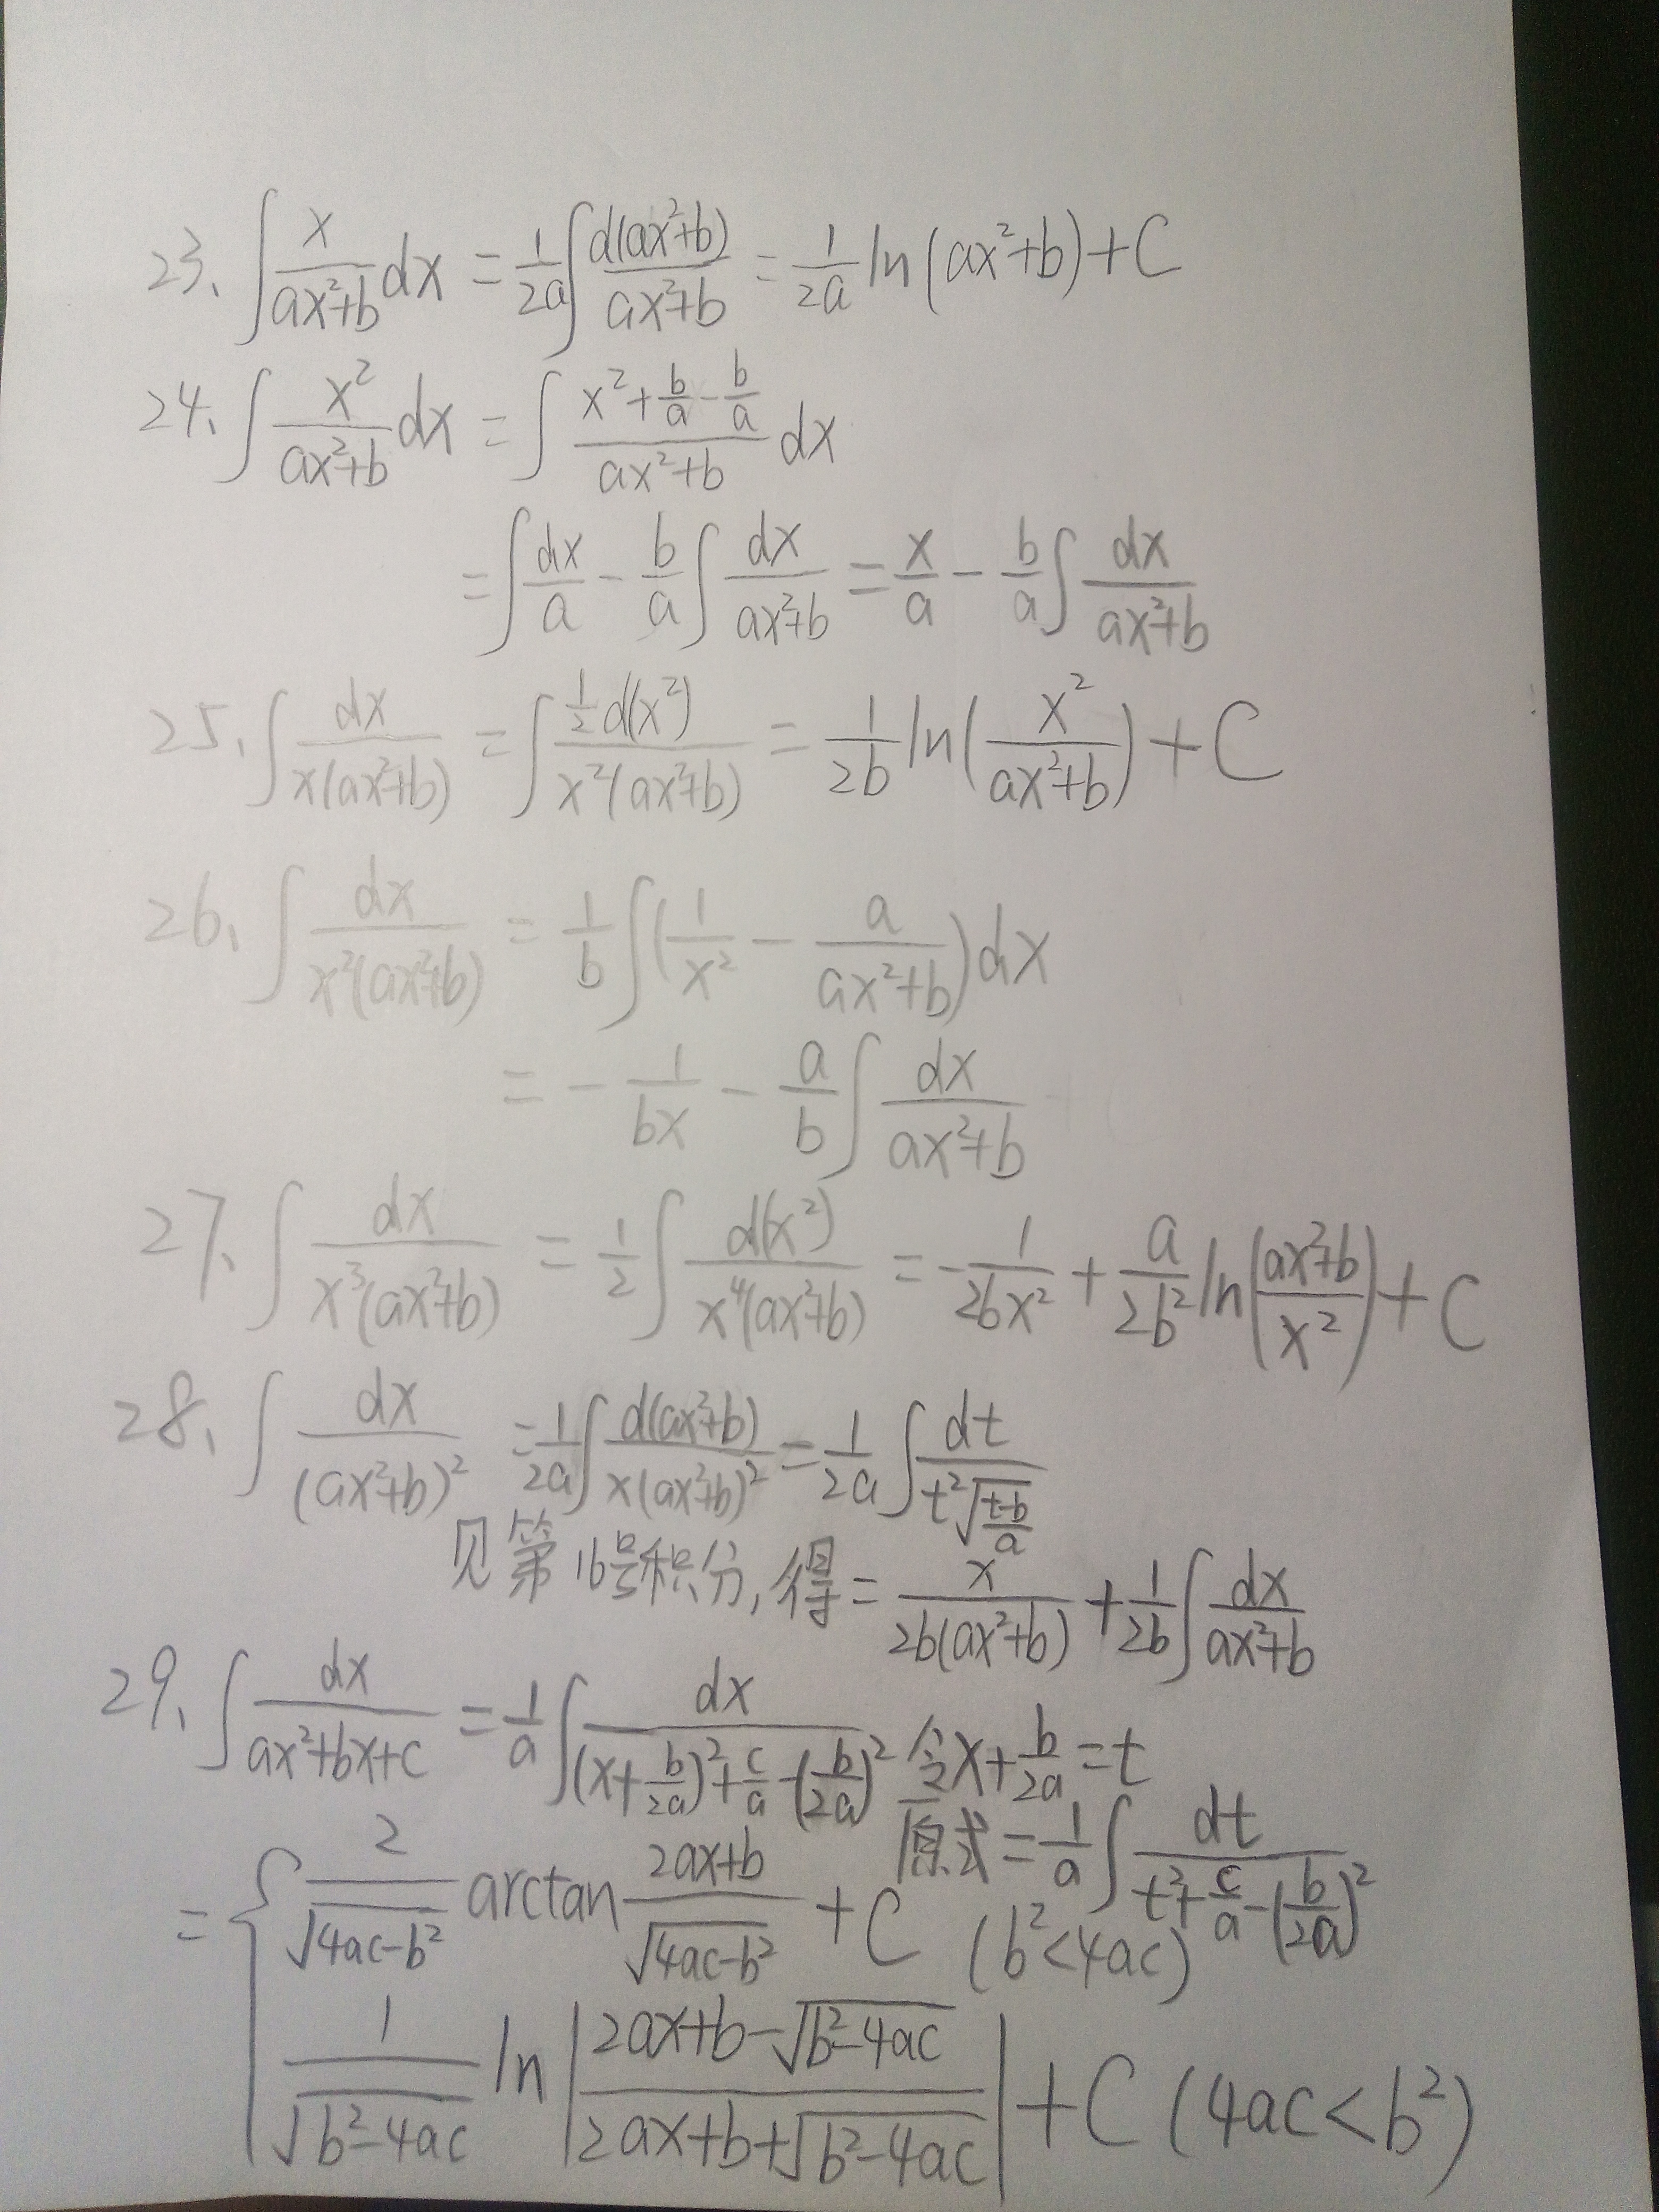 23、∫ x/(ax²+b) dx = 1/(2a) ∫ d(ax²+b)/(ax²+b) = 1/(2a) ln(ax²+b)+C
24、∫ x²/(ax²+b) dx = ∫ (x²+b/a-b/a)/(ax²+b) dx
= ∫ dx/a - b/a ∫ dx/(ax²+b) = x/a - b/a ∫ dx/(ax²+b)
25、∫ dx/(x(ax²+b)) = ∫ ½d(x²)/(x²(ax²+b)) = 1/(2b) ln(x²/(ax²+b)) + C
26、∫ dx/(x²(ax²+b)) = 1/b ∫ (1/x² - a/(ax²+b)) dx
= - 1/(bx) - a/b ∫ dx/(ax²+b)
27、∫ dx/(x³(ax²+b)) = ½ ∫ d(x²)/(x⁴(ax²+b)) = - 1/(2bx²) + a/(2b²) ln|(ax²+b)/x²| + C
28、∫ dx/(ax²+b)² = 1/(2a) ∫ d(ax²+b)/(x(ax²+b)²) = 1/(2a) ∫ dt/(t²√((t-b)/a))
见第16号积分,得 = x/(2b(ax²+b)) + 1/(2b) ∫ dx/(ax²+b)
29、∫ dx/(ax²+bx+c) = 1/a ∫ dx/((x+b/(2a))²+c/a-(b/(2a))²) 令x+b/(2a)=t
原式 = 1/a ∫ dt/(t²+c/a-(b/(2a))²)
= { 2/√(4ac-b²) arctan (2ax+b)/√(4ac-b²) + C (b²<4ac)
1/√(b²-4ac) ln|(2ax+b-√(b²-4ac))/(2ax+b+√(b²-4ac))| + C (4ac<b²)